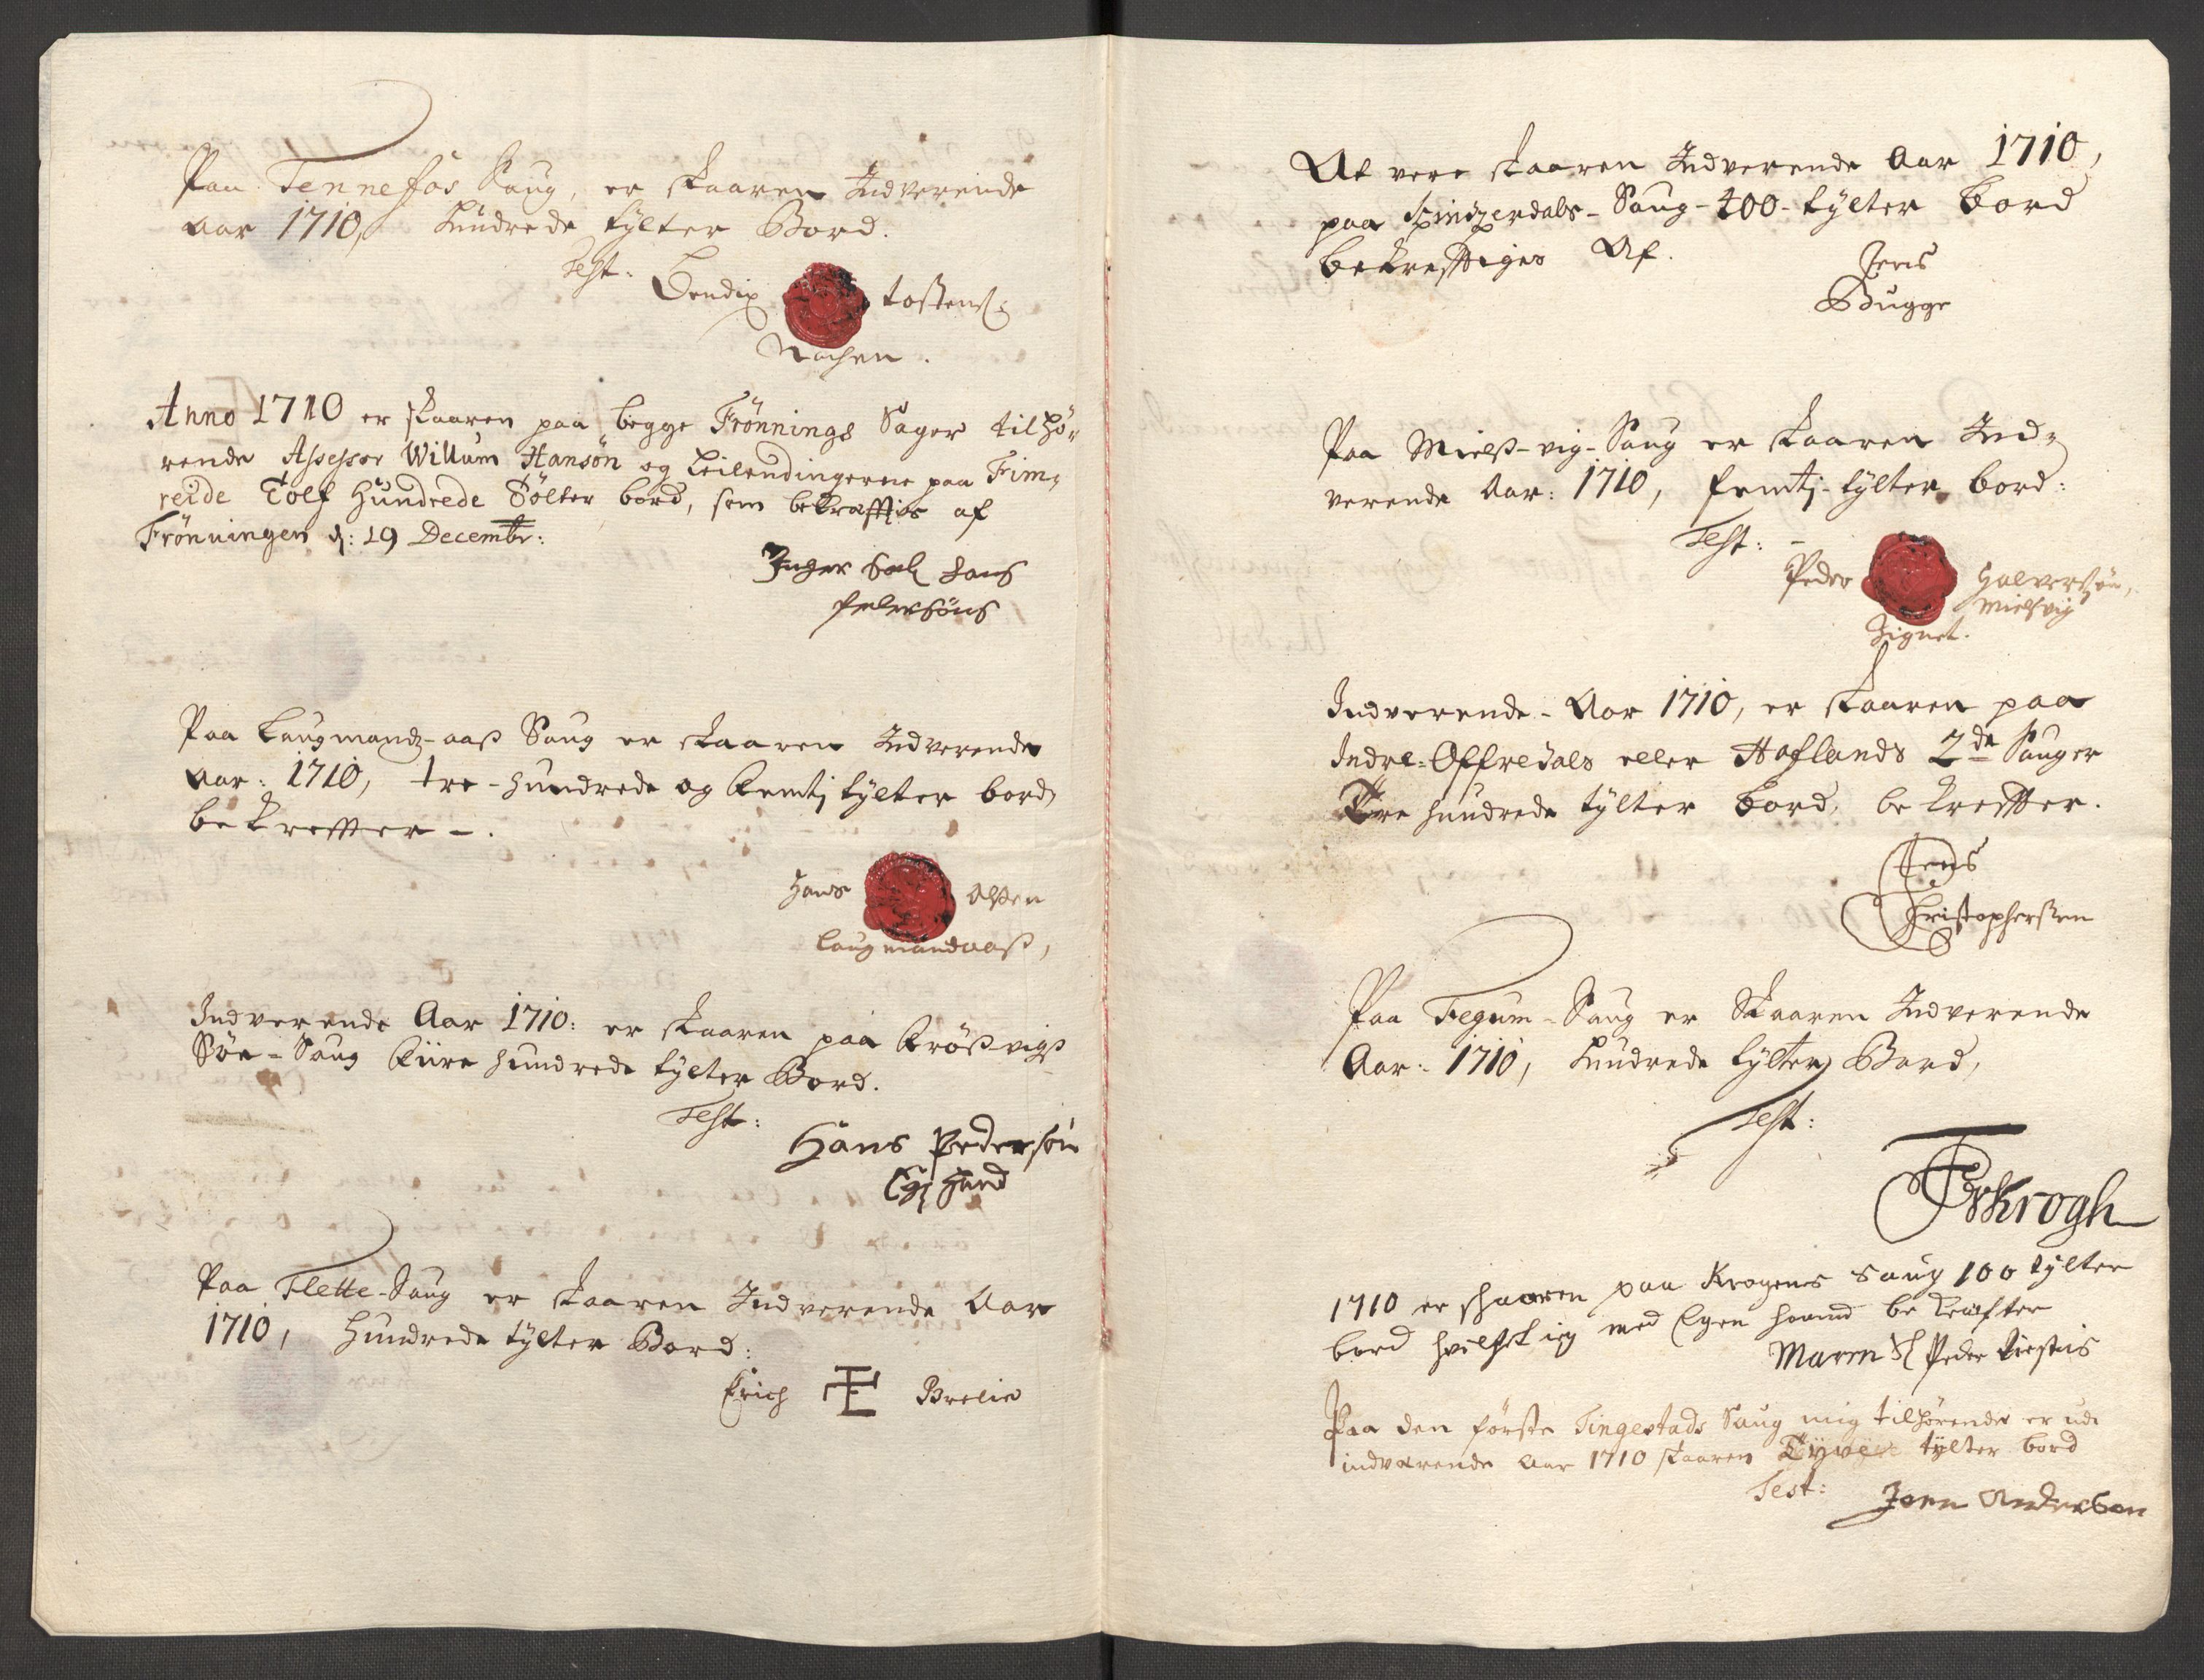 Paa Tennefos Saug, er skaaren Indverende
aar 1710, hundrede tylter Bord.
Test:
Bendix tostens:
Anno 1710 er skaaren paa begge Frönnings Sager tilhö-
rende Assessor Willum Hansön og Leilendingerne paa Fim-
reide Tolf Hundrede Tölter bord, som bekrafftes af
Frönningen d: 19 Decembr:
Inger Sal Hans
Pedersöns
Paa Laugmands-aas Saug er skaaren Indverende
Aar: 1710, tre-hundrede og femti tylter bord,
bekreffter -.
Hans Olsen
Laugmandaas,
Indverende Aar 1710: er skaaren paa Krösvigs
Söe-Saug fiire hundrede tylter Bord.
Test:
Hans Pedersön
Egh Hand
Paa Flette-Saug er skaaren Indverende Aar
1710, hundrede tylter Bord:
Erich Brelie
At vere skaaren Indverende Aar 1710,
paa -Saug- 400- tylter bord
bekrefftiges Af.
Jens
Bugge
Paa Miels-vig-Saug er skaaren Ind-
verende Aar: 1710, femti-tylter bord:
Test: -
Peder Halversøn,
Mielsvig
Zignet.
Indverende-Aar 1710, er skaaren paa
Indre-Offredals eller Haflands 2de Sauger
Tre hundrede tylter bord, bekreffter.
Jens
Christophersen
Paa Fegum-Saug er Skaaren Indverende
Aar: 1710, hundrede tylter Bord,
Test:
Krogh
1710 er skaaren paa Krogens Saug 100 tylter
bord hvilket ieg med Egen haand bekrafter
Maren Sl Peder
Paa den förste Tingestads Saug mig tilhörende er udi
indværende Aar 1710 skaaren Tyve tylter bord
Test:
Jenn Andersen